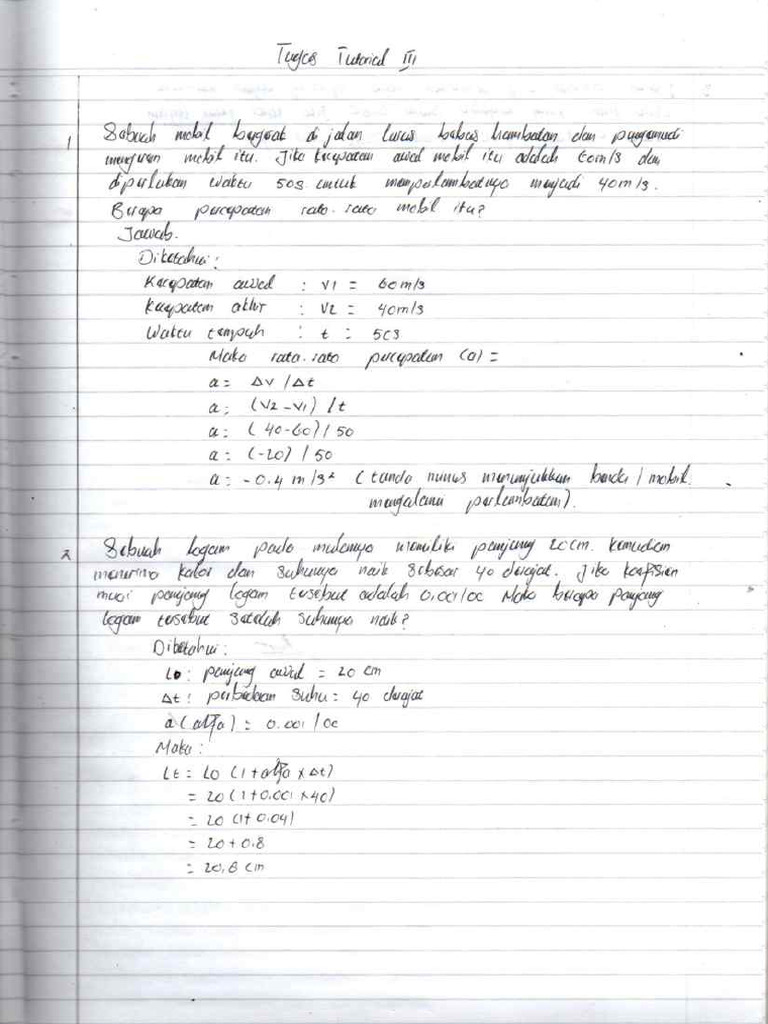 Tugas Tutorial III
1 Sebuah mobil bergerak di jalan lurus bebas hambatan dan pengemudi
mengerem mobil itu. Jika kecepatan awal mobil itu adalah 60m/s dan
diperlukan waktu 50s untuk memperlambatnya menjadi 40m/s.
Berapa percepatan rata-rata mobil itu?
Jawab.
Diketahui:
Kecepatan awal : V1 = 60m/s
Kecepatan akhir : V2 = 40m/s
Waktu tempuh : t = 50s
Maka rata-rata percepatan (a) =
a = Δv / Δt
a = (V2-V1) / t
a = (40-60) / 50
a = (-20) / 50
a = -0.4 m/s² (tanda minus menunjukkan benda / mobil
mengalami perlambatan).
2 Sebuah logam pada mulanya memiliki panjang 20cm. Kemudian
menerima kalor dan suhunya naik sebesar 40 derajat. Jika koefisien
muai panjang logam tersebut adalah 0.001/0C Maka berapa panjang
logam tersebut setelah suhunya naik?
Diketahui:
L0 : panjang awal = 20 cm
Δt : perbedaan suhu = 40 derajat
a (alfa) = 0.001 / 0C
Maka:
Lt = L0 (1+alfa x Δt)
= 20 (1+0.001 x 40)
= 20 (1+0.04)
= 20 + 0.8
= 20,8 cm